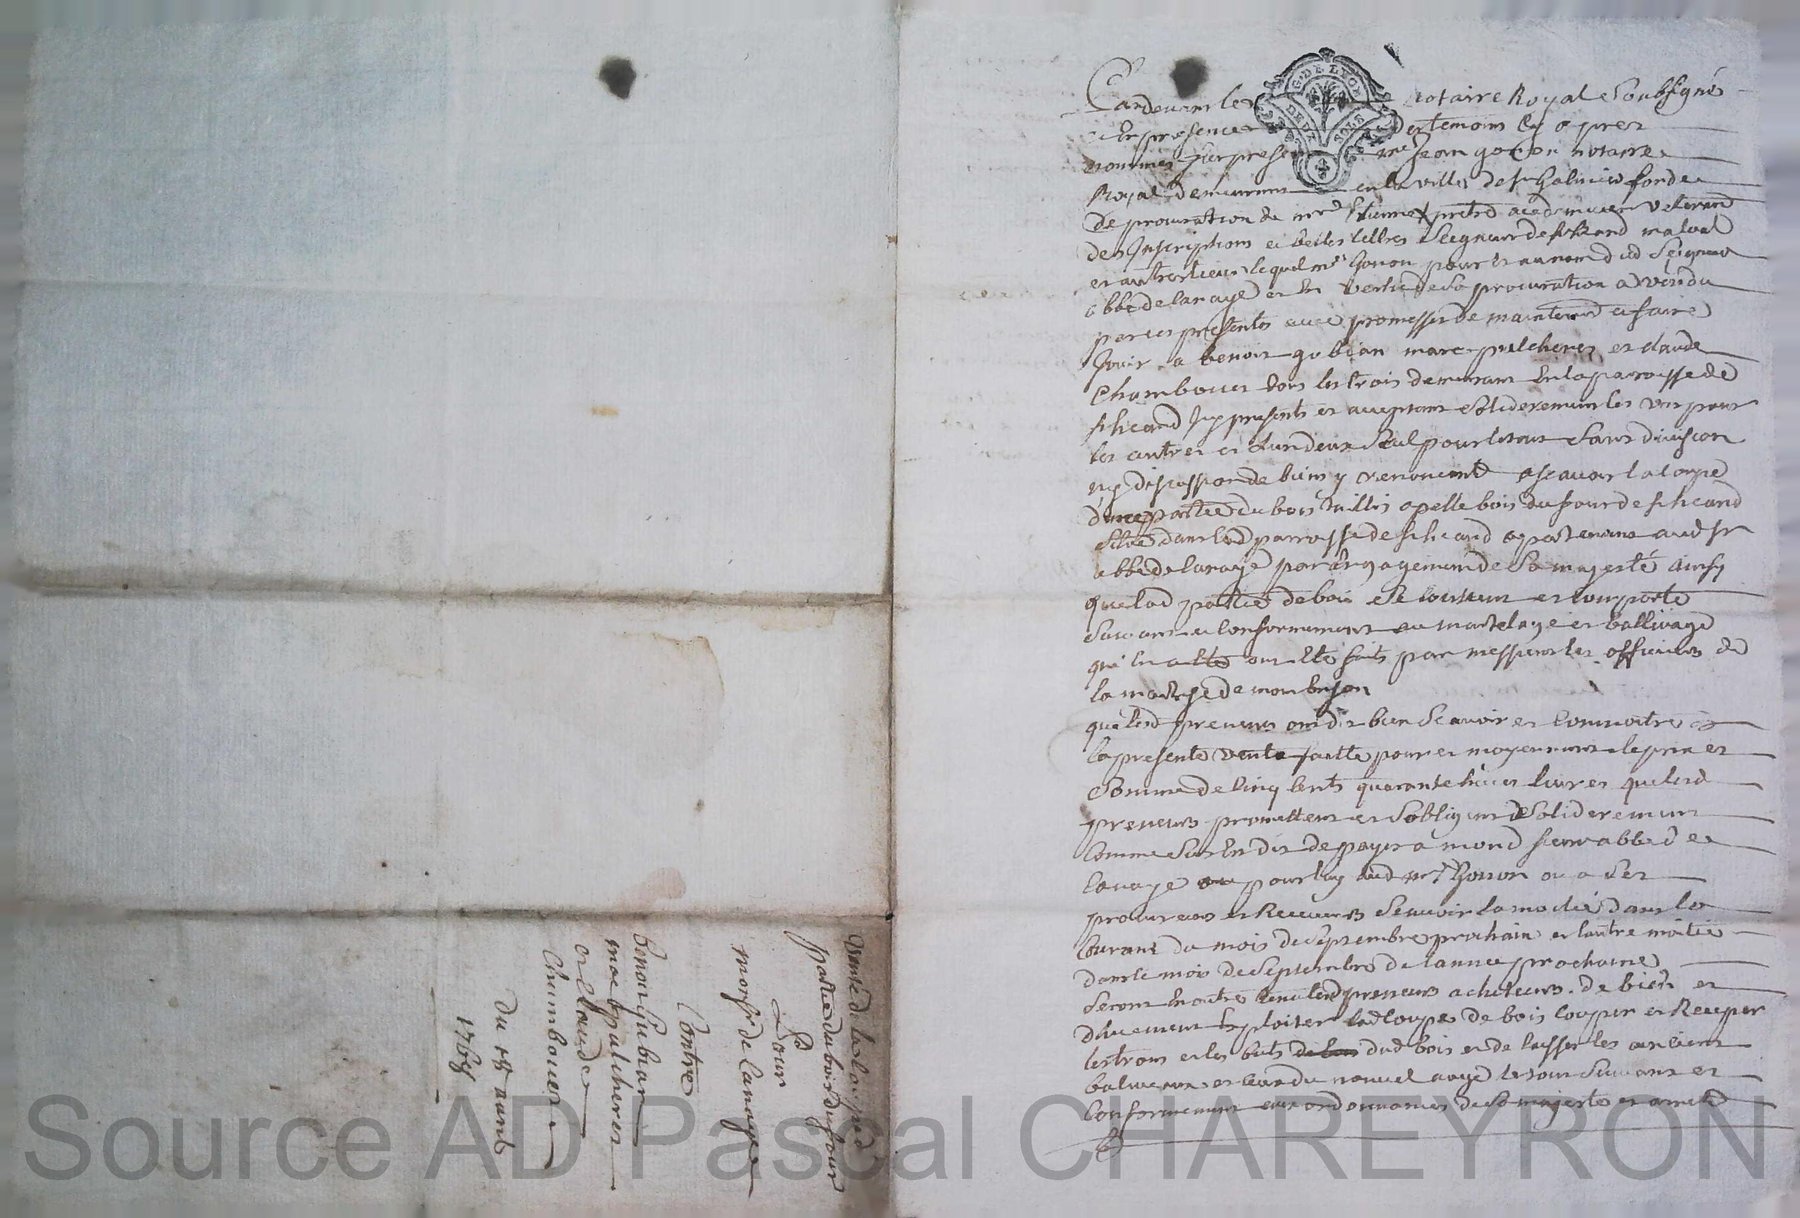 Pardevant le notaire Royal Soubsigné
et En presence des temoins Cy apres
nommes fut present me Jean gonon notaire
Royal demeurant en la ville de st Galmier fondé
De procuration de mre Etienne pretre academicien veteran
des Inscriptions et belles lettres Seigneur de
et autres lieux lequel mr Gonon pour et au nom dud Seigneur
abbé de lanaye et En vertu de Sa procuration a vendu
par ces presentes avec promesse de maintenir et faire
Jouir a benoit gubian marc pulcherer et claude
Chambouet tous les trois demeurant En la parroisse de
st heand Icy presents et acceptant Soliderement les uns pour
les autres et L'un d'eux Seul pour le tout Sans division
ny discussion de biens y renoncant a scavoir la coupe
d'une partie du bois taillis apellé bois du four de st heand
Situé dans lad parroisse de st heand apartenant aud sr
abbé de lanaye par Engagement de Sa majesté ainsy
que lad partie de bois Se contient et comporte
Suivant et conformement au martelage et ballivage
qui En a été faits par messieurs les officiers de
la maitrise de montbrison
que lesd preneurs ont dit bien Scavoir et connoitre
la presente vente faitte pour et moyennant le prix et
Somme de Cinq Cents quarante huit livres que lesd
preneurs promettent et S'obligent Soliderement
Comme Sus Est dit de payer a mond Sieur abbé de
lanaye ou pour luy aud mr Gonon ou a Ses
procureurs et Receveurs Scavoir la moitié dans le
Courant du mois de Septembre prochain et l'autre moitié
dans le mois de Septembre de l'année prochaine
Seront En outre tenu lesd preneurs acheteurs de bien et
duement Exploiter lad coupe de bois couper et Receper
les troncs et les buts dud bois et de laisser les anciens
baliveaux et ceux du nouvel aage le tout Suivant et
Conformement aux ordonnances de Sa majesté et
vente de la coupe de
partie du bois du four
Pour
monsr de lanaye
Contre
benoit Gubian
marc pulcherer
et Claude
Chambouet
Du 18 aout
1768
G. DE LYON
DEUX SOLS
Source AD Pascal CHAREYRON